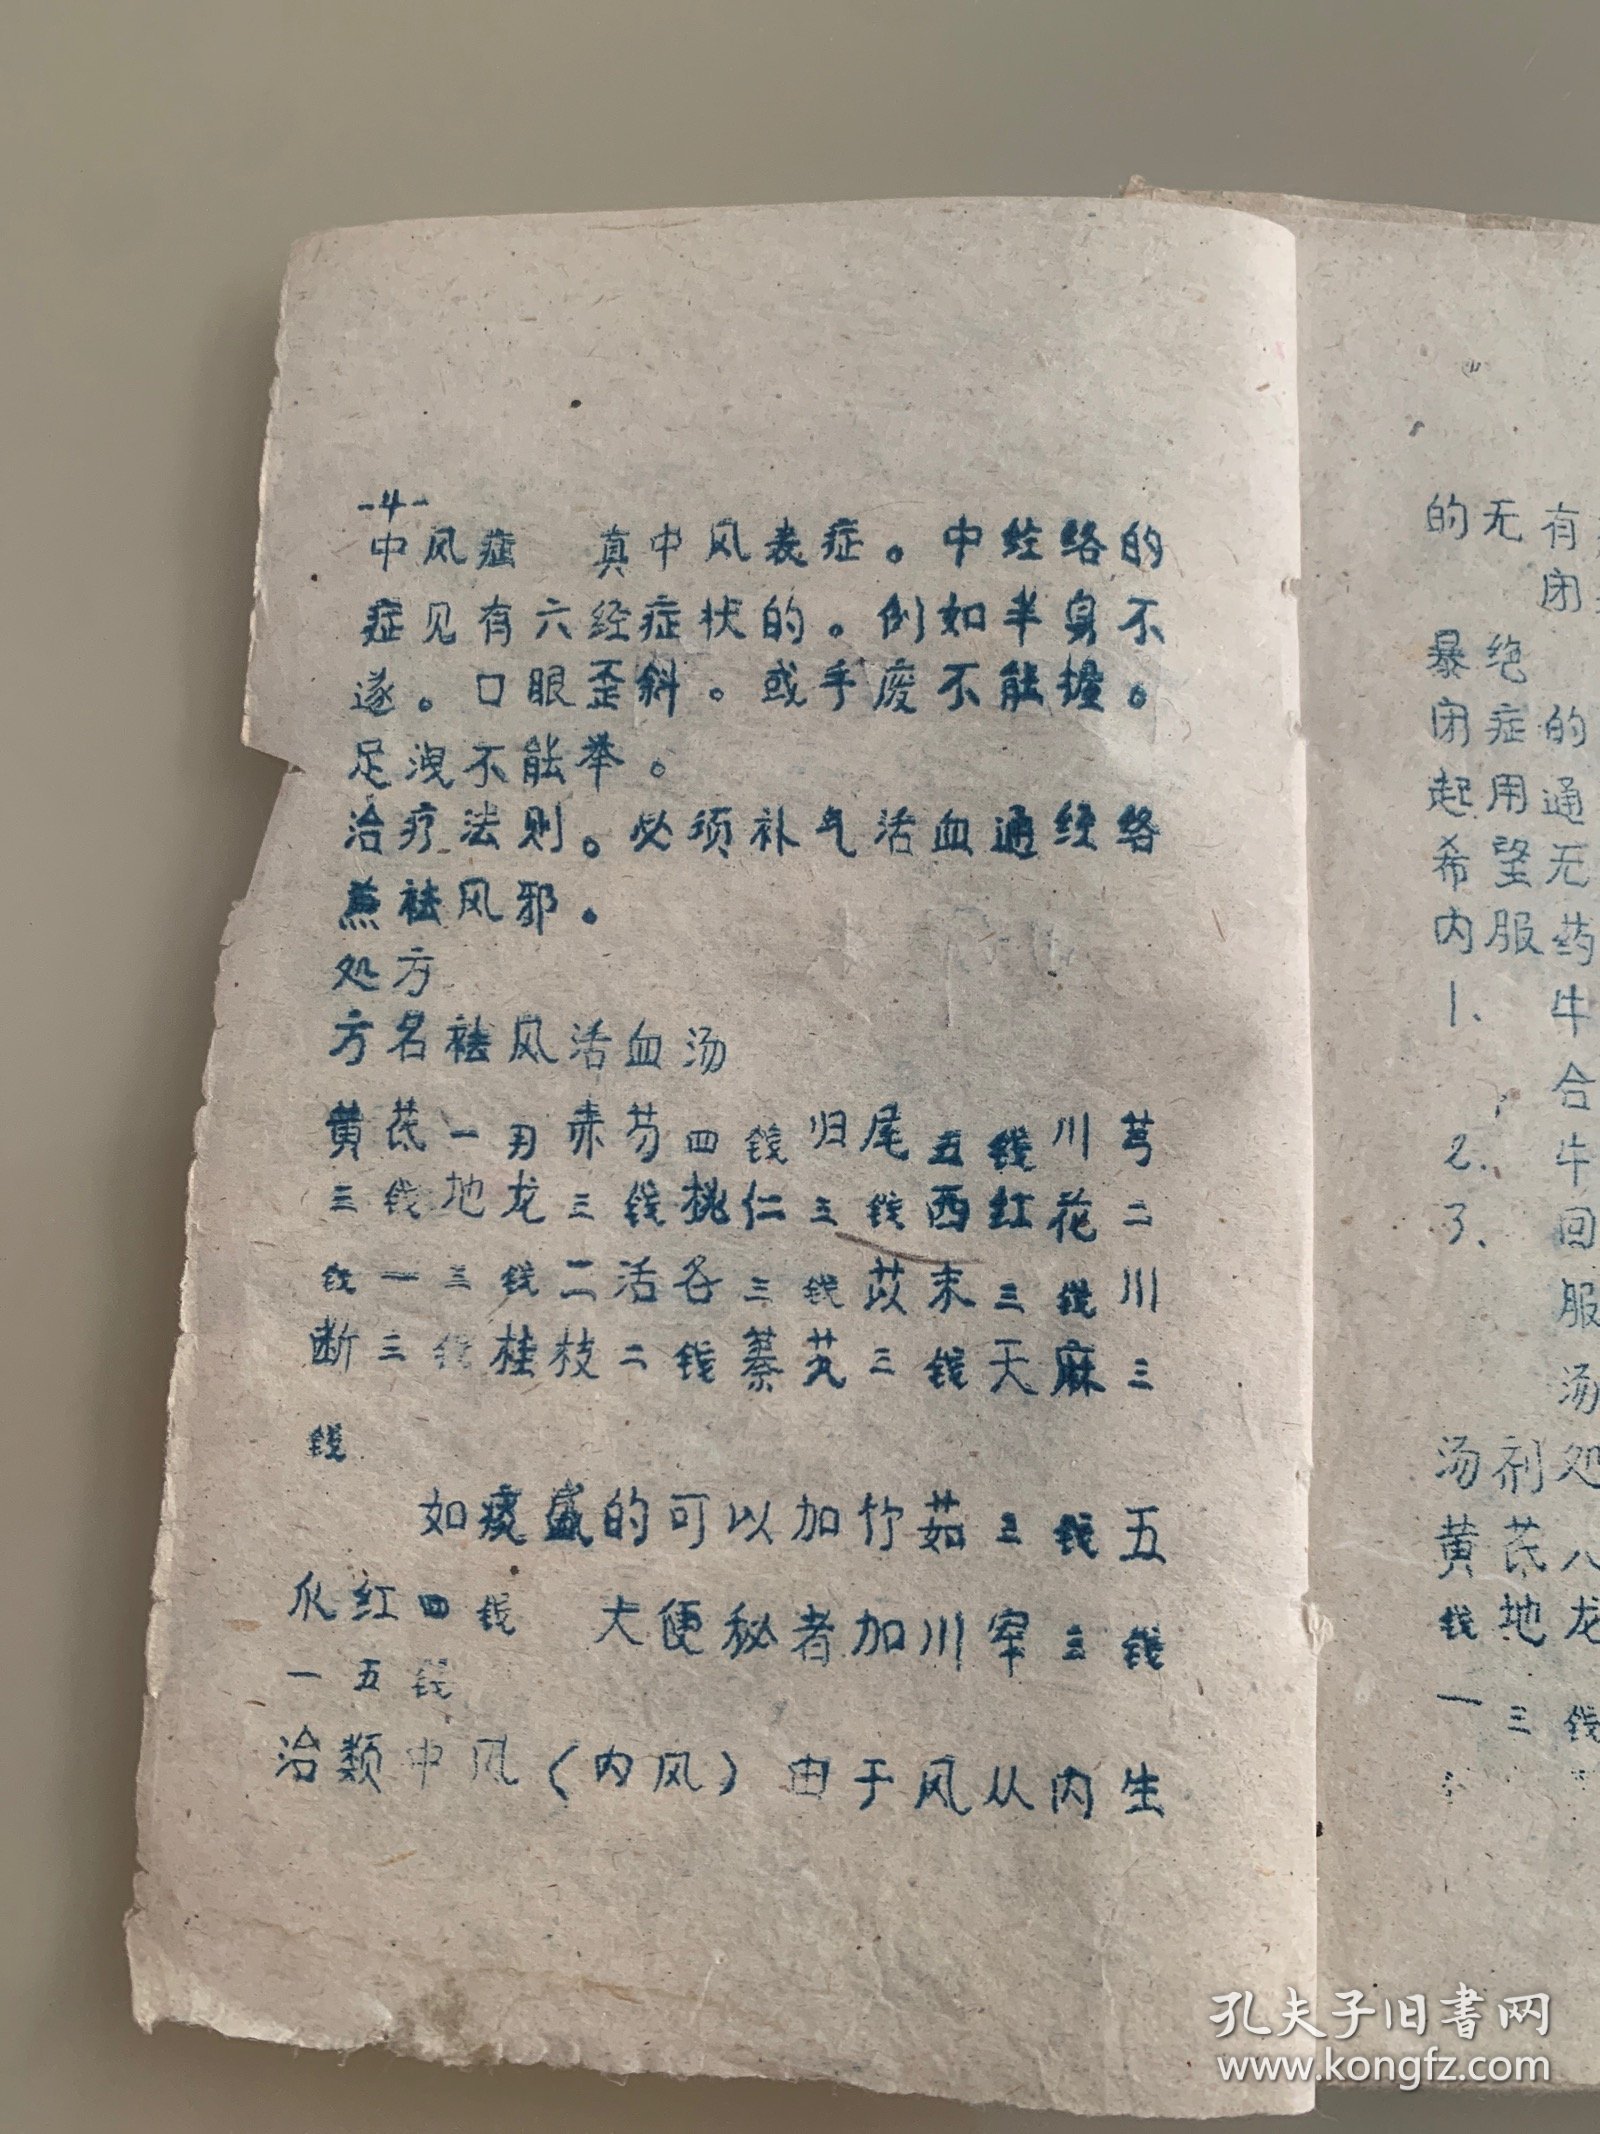 -4-
中风症 真中风表症。中经络的
症见有六经症状的。例如半身不
遂。口眼歪斜。或手废不能握。
足洩不能举。
治疗法则。必须补气活血通经络
兼祛风邪。
处方
方名祛风活血汤
黄芪一刃赤芍四钱归尾五钱川芎
三钱地龙三钱桃仁三钱西红花二
钱一三钱二活各三钱苡末三钱川
断三钱桂枝二钱蓁艽三钱天麻三
钱
如痰盛的可以加竹茹三钱五
爪红四钱 大便秘者加川军三钱
一五钱
治类中风(内风)由于风从内生
的无有
闭
暴绝
闭症的
起用通
希望无
内服药
1、牛
合
2、牛
3、回
服
汤
汤剂处
黄芪八
钱地龙
一三钱
孔夫子旧书网
www.kongfz.com